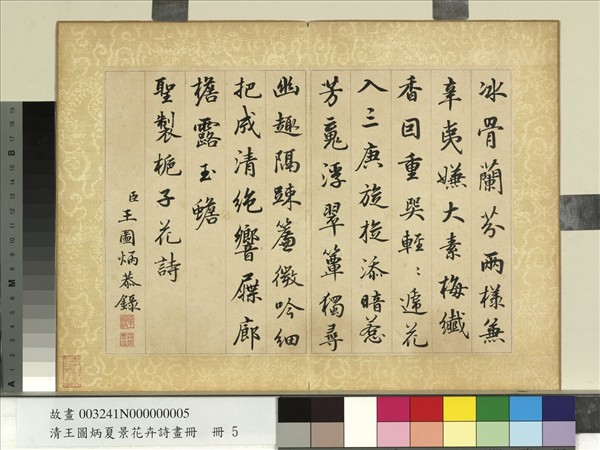 冰骨蘭芬兩樣兼
辛夷嫌大素梅纖
香因重與輕〻遠花
入三庚旋旋添暗惹
芳魂浮翠簟獨尋
幽趣隔疎簾微吟細
把成清絕響屧廊
檐露玉蟾
聖製梔子花詩
臣王圖炳恭錄
故畫 003241N000000005
清王圖炳夏景花卉詩畫冊 冊 5